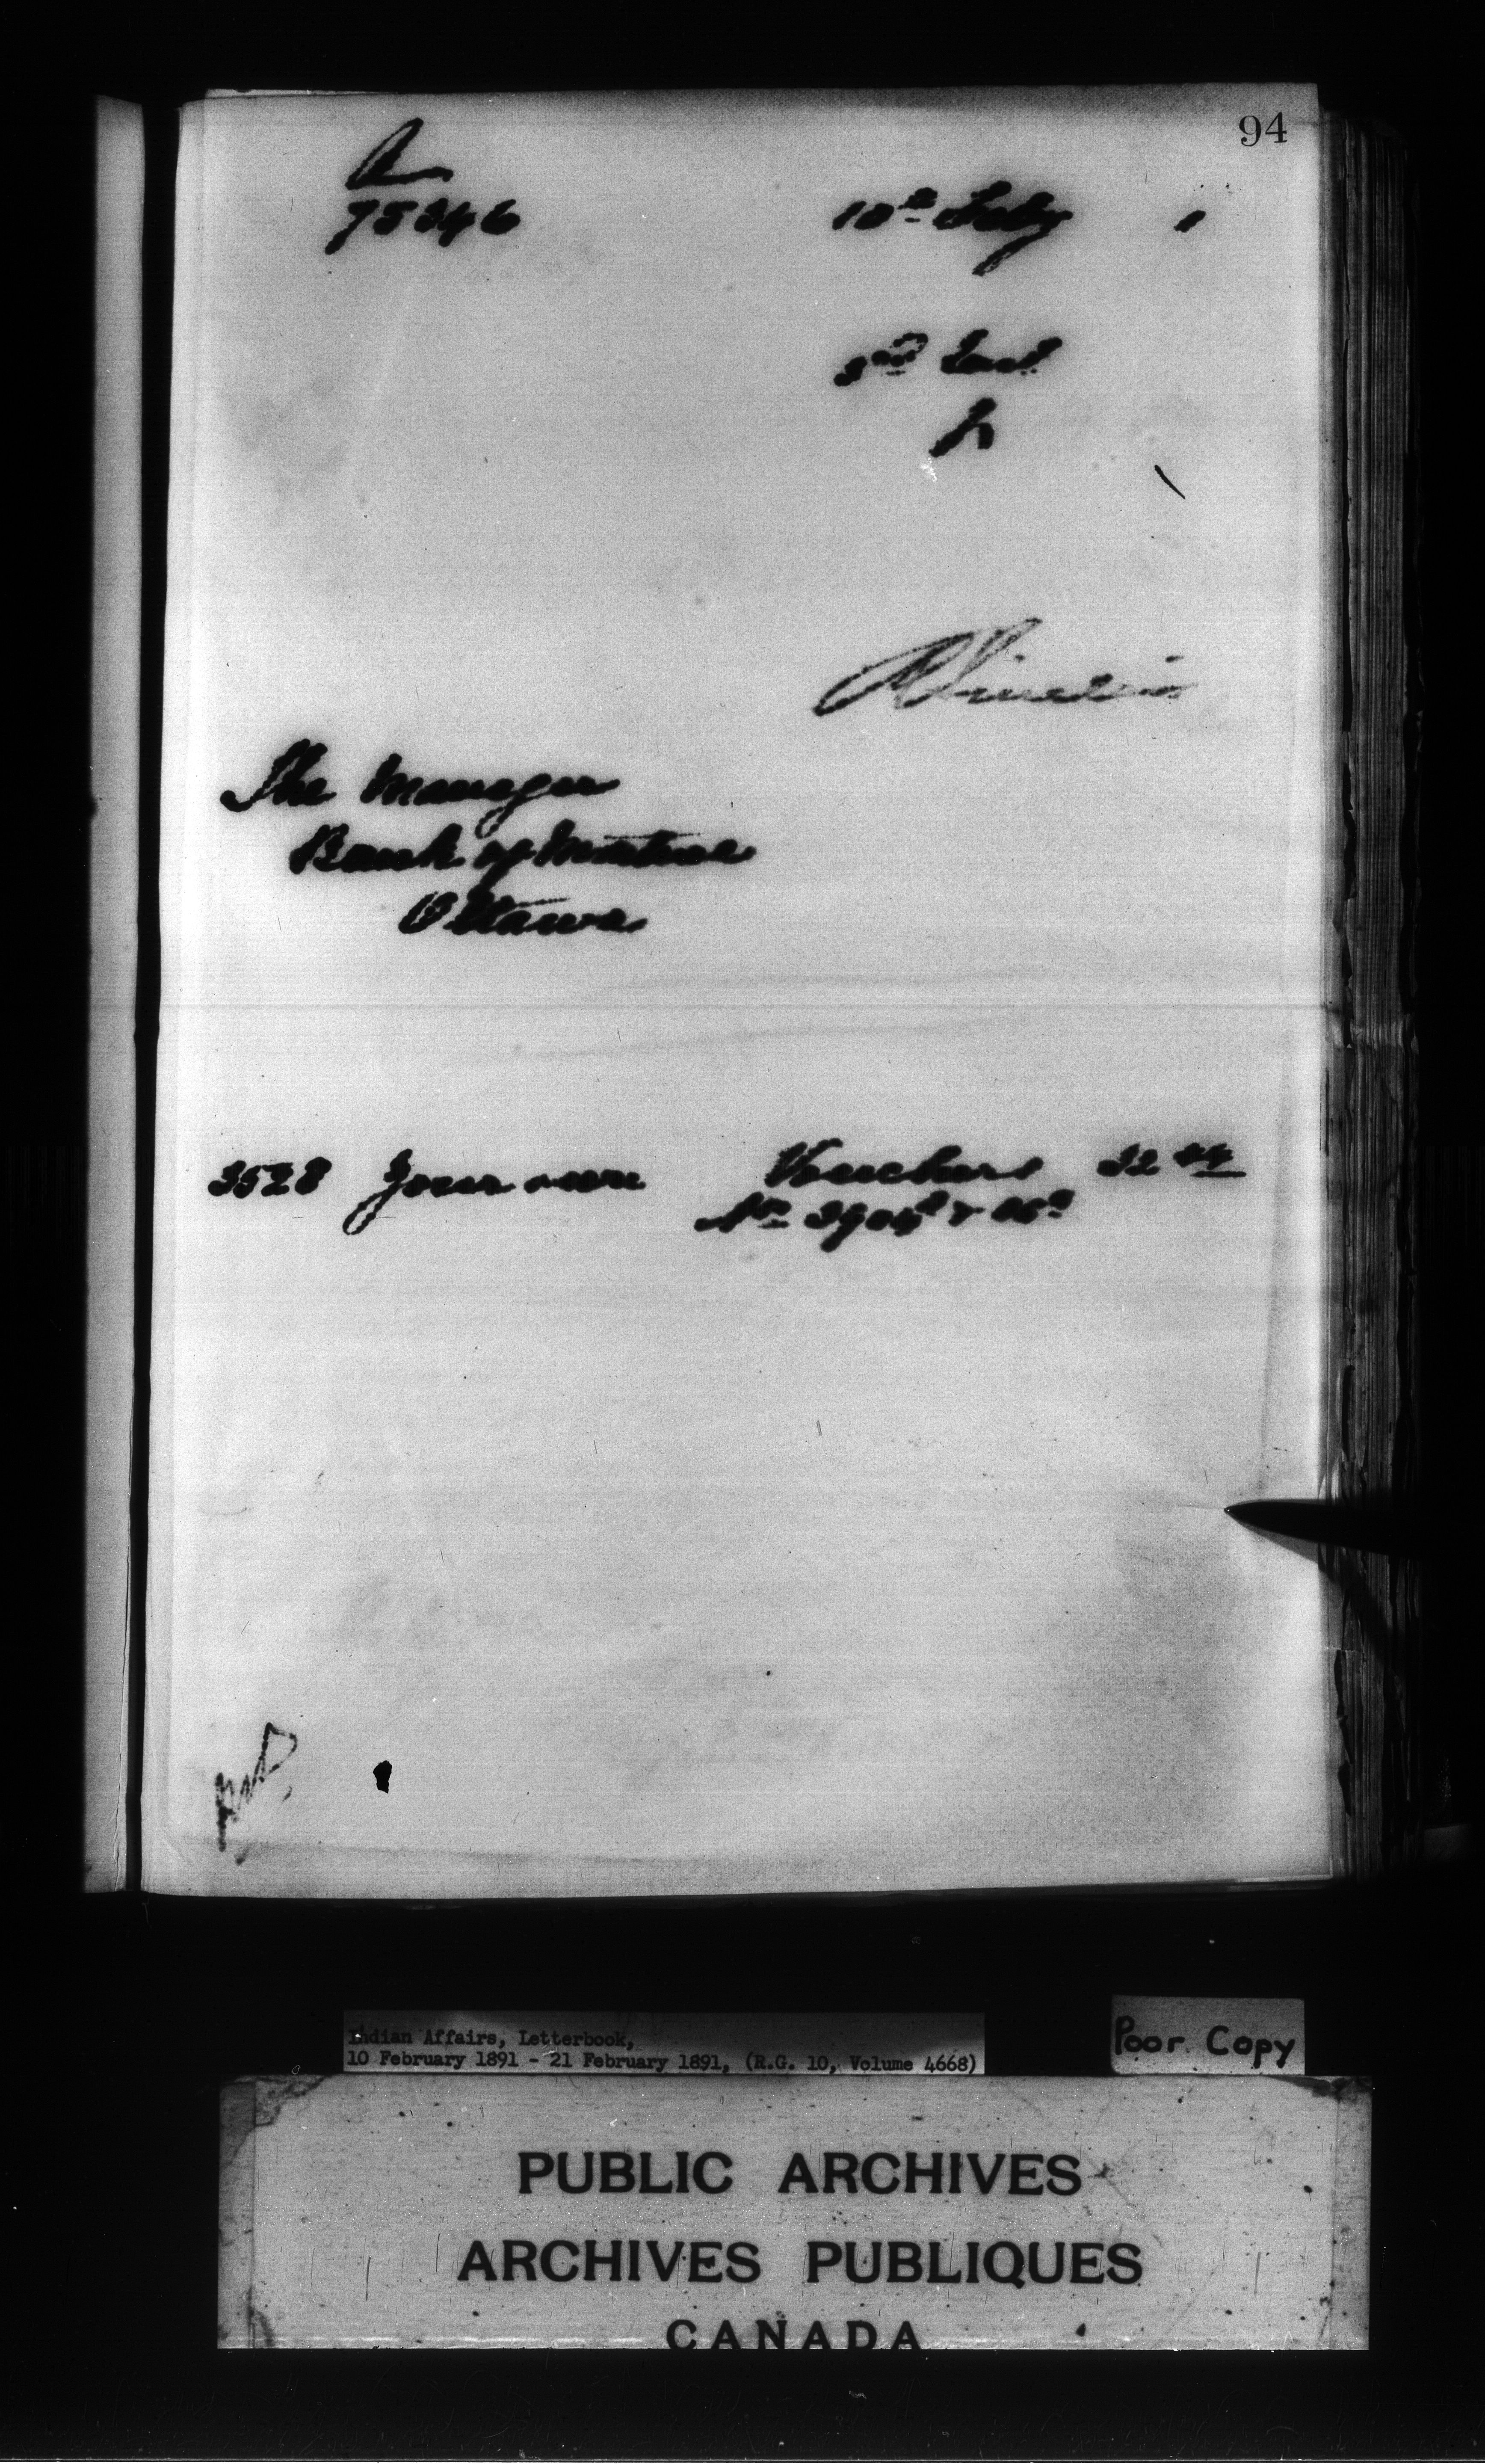 94
A
75346
10th Feby 1
3rd Inst
The Manager
Bank of Montreal
Ottawa
3528 Your own Vouchers 32
No
Indian Affairs, Letterbook,
10 February 1891 - 21 February 1891, (R.G. 10, Volume 4668)
Poor Copy
PUBLIC ARCHIVES
ARCHIVES PUBLIQUES
CANADA